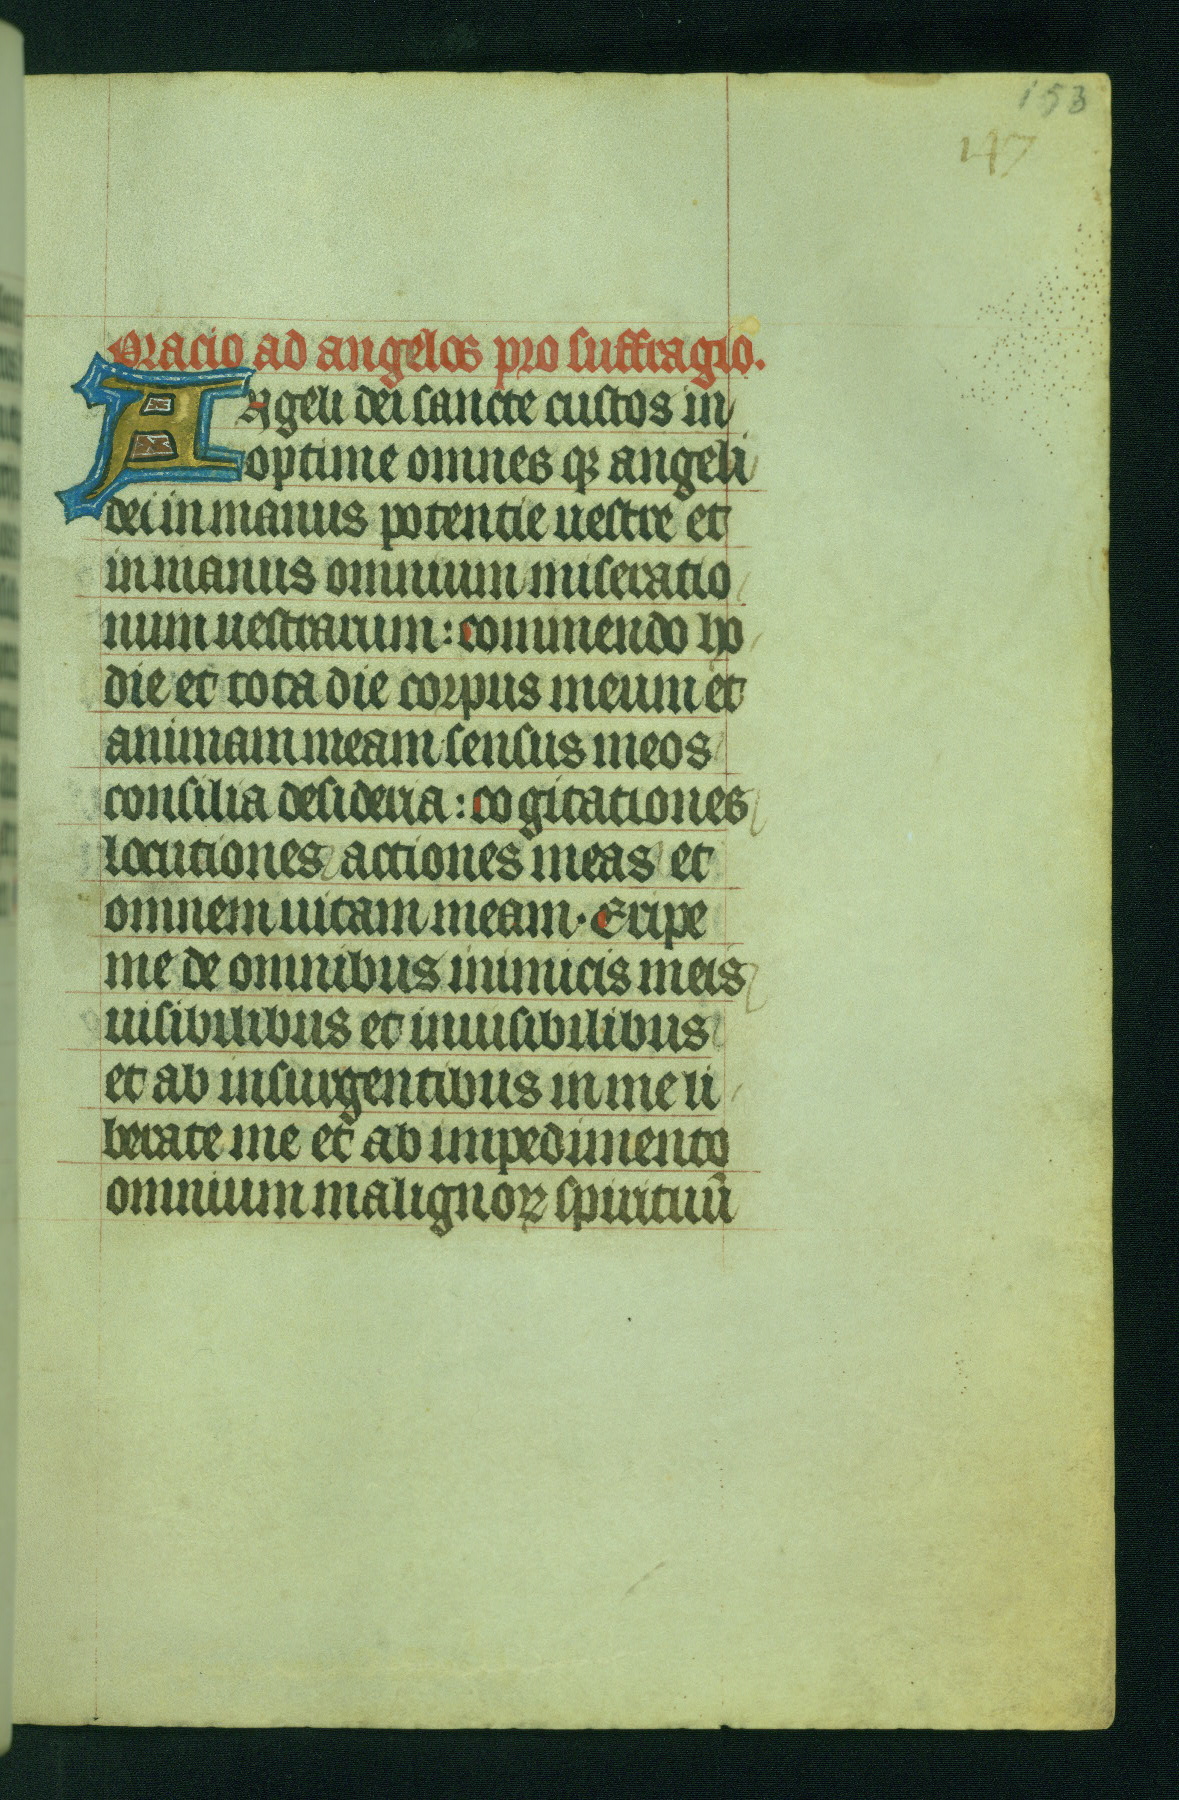 153
147
Oracio ad angelos pro suffragio.
Angeli dei sancte custos in
optime omnes qꝫ angeli
dei in manus potentie uestre et
in manus omnium miseratio
num uestrarum : commendo ho
die et tota die corpus meum et
animam meam sensus meos
consilia desideria : cogitationes
locutiones actiones meas et
omnem uitam meam · Eripe
me de omnibus inimicis meis
uisibilibus et inuisibilibus
et ab insurgentibus in me li
berate me et ab impedimento
omnium malignoꝝ spirituū